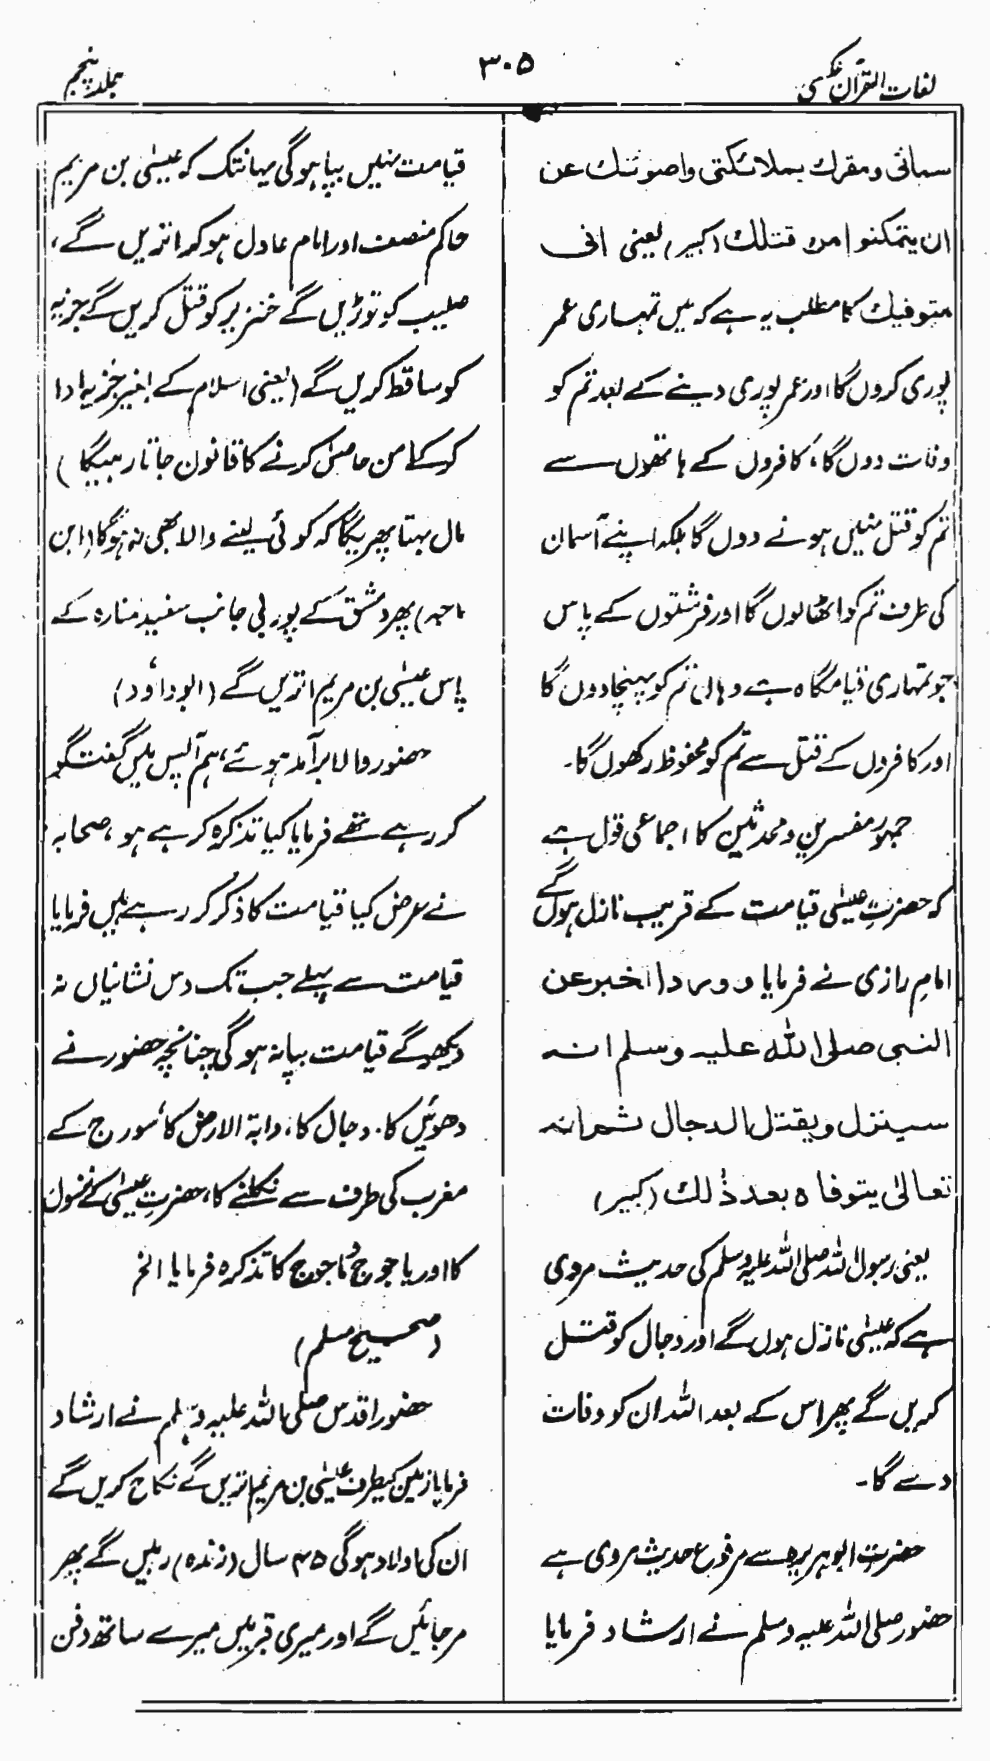 لغات القرآن عکسی
۳۰۵
جلد پنجم
سمائی ومقرك بملائكتی واصونك عن
ان یتمكنوا من قتلك (کبیر) یعنی انی
متوفیك کا مطلب یہ ہے کہ میں تمہاری عمر
پوری کروں گا اور عمر پوری دینے کے بعد تم کو
وفات دوں گا، کافروں کے ہاتھوں سے
تم کو قتل نہیں ہونے دوں گا بلکہ اپنے آسمان
کی طرف تم کو اٹھا لوں گا اور فرشتوں کے پاس
جو تمہاری قیام گاہ ہے وہاں تم کو پہنچا دوں گا
اور کافروں کے قتل سے تم کو محفوظ رکھوں گا۔
جمہور مفسرین و محدثین کا اجماعی قول ہے
کہ حضرت عیسیٰ قیامت کے قریب نازل ہوں گے
امام رازی نے فرمایا و ورد الخبر عن
النبی صلی اللہ علیہ وسلم انہ
سینزل ویقتل الدجال ثم انہ
تعالیٰ یتوفاہ بعد ذٰلك (کبیر)
یعنی رسول اللہ صلی اللہ علیہ وسلم کی حدیث مروی
ہے کہ عیسیٰ نازل ہوں گے اور دجال کو قتل
کریں گے پھر اس کے بعد اللہ ان کو وفات
دے گا۔
حضرت ابوہریرہ سے مرفوع حدیث مروی ہے
حضور صلی اللہ علیہ وسلم نے ارشاد فرمایا
قیامت نہیں بپا ہوگی یہانتک کہ عیسیٰ بن مریم
حاکم منصف اور امام عادل ہو کر اتریں گے،
صلیب کو توڑیں گے خنزیر کو قتل کریں گے جزیہ
کو ساقط کریں گے (یعنی اسلام کے بغیر جزیہ ادا
کر کے امن حاصل کرنے کا قانون جاتا رہیگا)
مال بہتا پھریگا کہ کوئی لینے والا بھی نہ ہوگا (ابن
ماجہ) پھر دمشق کے پوربی جانب سفید منارہ کے
پاس عیسیٰ بن مریم اتریں گے (ابوداؤد)
حضور والا برآمد ہوئے، ہم آپس میں گفتگو
کر رہے تھے فرمایا کیا تذکرہ کر رہے ہو، صحابہ
نے عرض کیا قیامت کا ذکر کر رہے ہیں فرمایا
قیامت سے پہلے جب تک دس نشانیاں نہ
دیکھو گے قیامت بپا نہ ہوگی چنانچہ حضور نے
دھوئیں کا۔ دجال کا، دابۃ الارض کا، سورج کے
مغرب کی طرف سے نکلنے کا، حضرت عیسیٰ کے نزول
کا اور یاجوج ماجوج کا تذکرہ فرمایا الخ
(صحیح مسلم)
حضور اقدس صلی اللہ علیہ وسلم نے ارشاد
فرمایا زمین کیطرف عیسیٰ بن مریم اتریں گے نکاح کریں گے
ان کی اولاد ہوگی ۴۵ سال (زندہ) رہیں گے پھر
مر جائیں گے اور میری قبر میں میرے ساتھ دفن